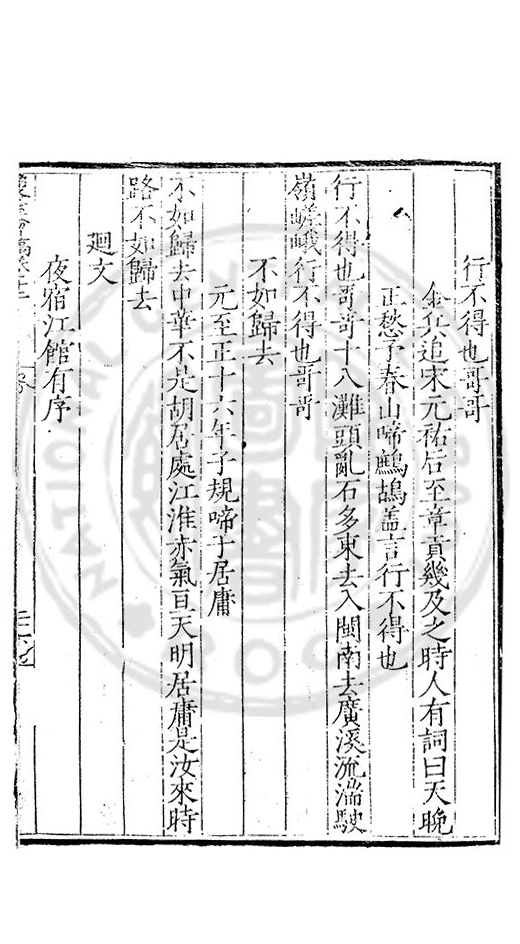 行不得也哥哥
金兵追宋元祐后至章貢幾及之時人有詞曰天晚
正愁予春山啼鷓鴣盖言行不得也
行不得也哥哥十八灘頭亂石多東去入閩南去廣溪流湍駛
嶺嵯峨行不得也哥哥
不如歸去
元至正十六年子規啼于居庸
不如歸去中華不是胡居處江淮赤氣亘天明居庸是汝來時
路不如歸去
廻文
夜宿江館有序